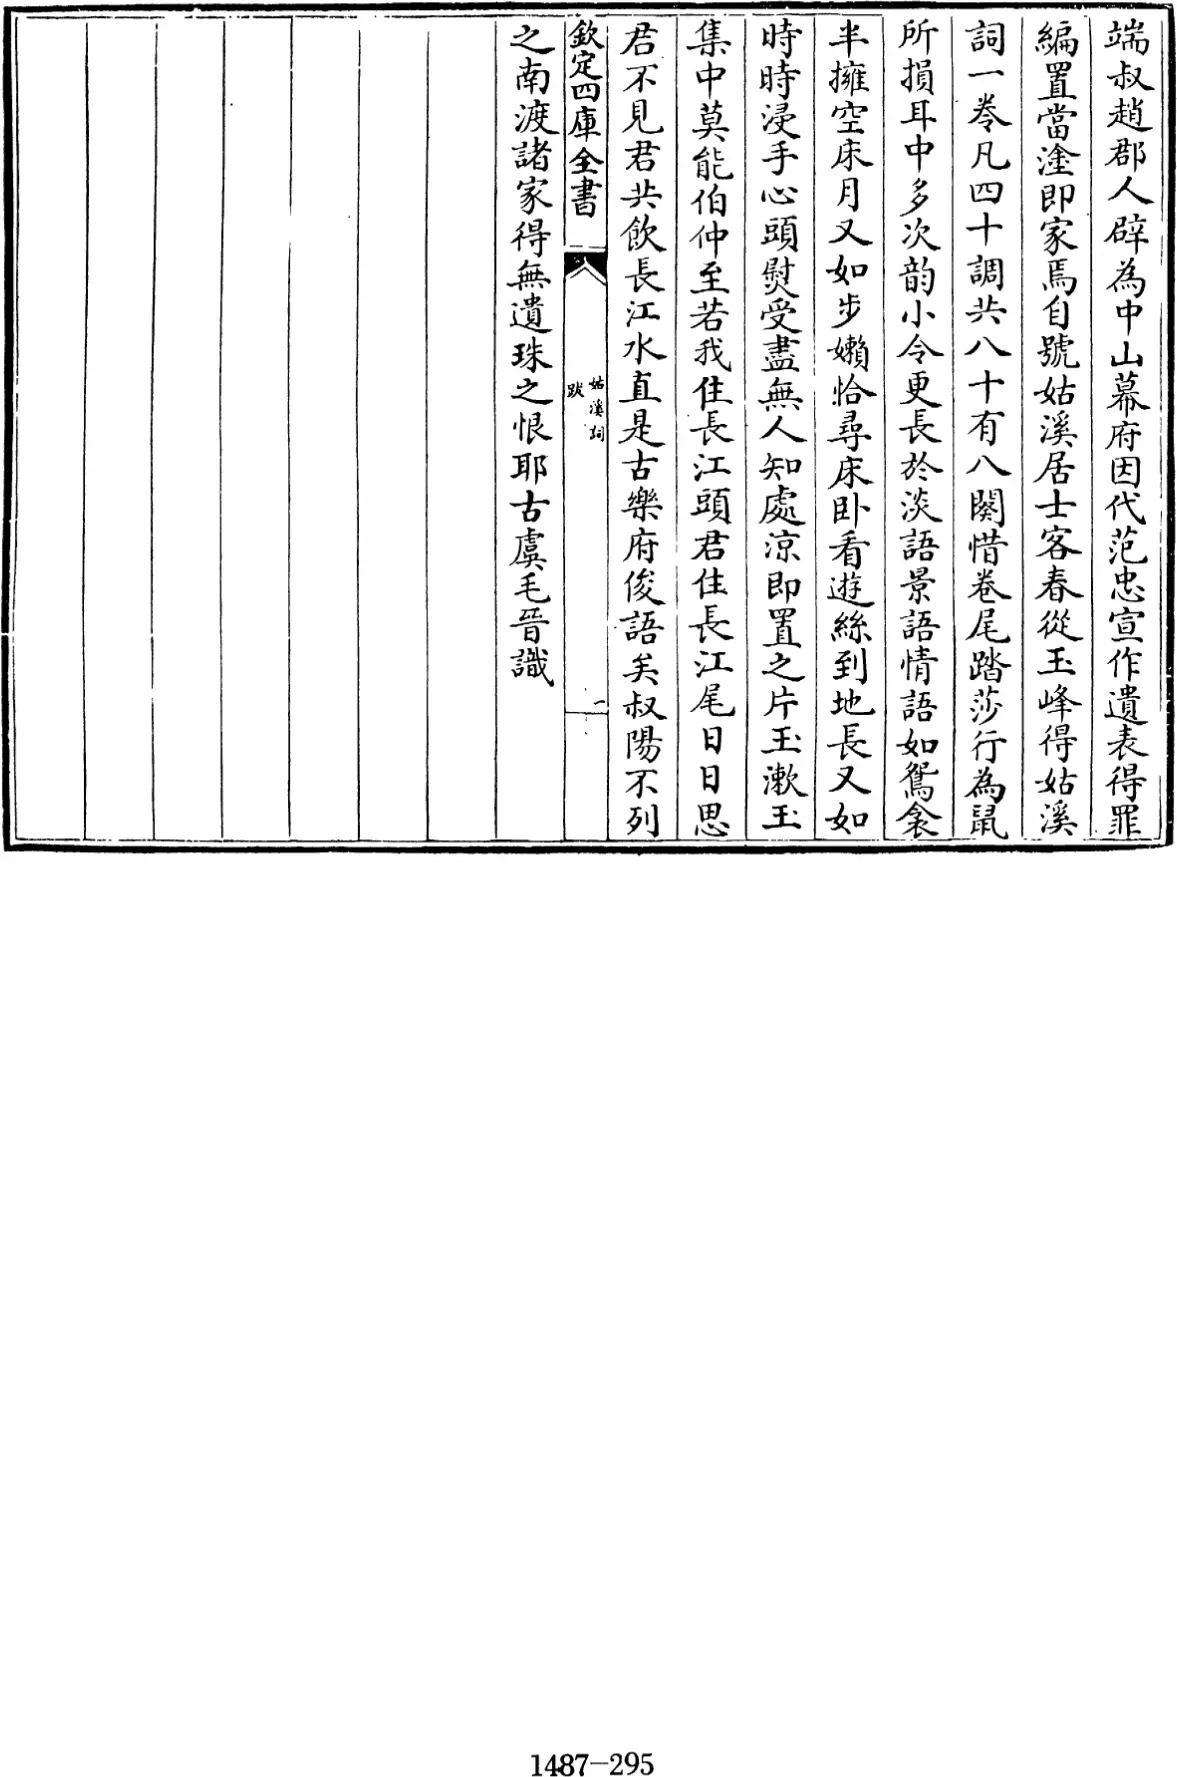 端叔趙郡人辟為中山幕府因代范忠宣作遺表得罪
編置當塗即家焉自號姑溪居士客春從玉峰得姑溪
詞一卷凡四十調共八十有八闋惜卷尾踏莎行為鼠
所損耳中多次韵小令更長於淡語景語情語如鴛衾
半擁空床月又如步嬾恰尋床卧看遊絲到地長又如
時時浸手心頭熨受盡無人知處涼即置之片玉漱玉
集中莫能伯仲至若我住長江頭君住長江尾日日思
君不見君共飲長江水直是古樂府俊語矣叔陽不列
欽定四庫全書
姑溪詞
跋
一
之南渡諸家得無遺珠之恨耶古虞毛晉識
1487-295